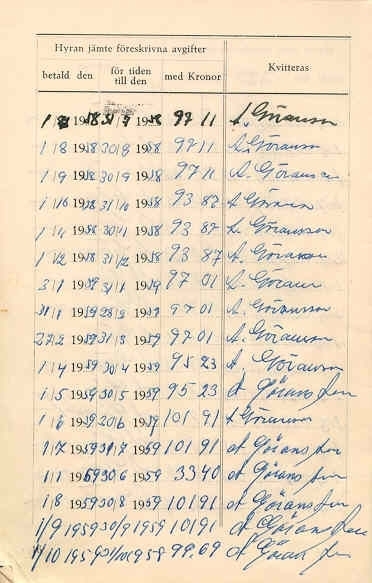 Hyran jämte föreskrivna avgifter
betald den för tiden till den med Kronor Kvitteras
1 8 1958 31/7 1958 97 11 A. Göransson
1/8 1958 30/8 1958 97 11 A. Göransson
1/9 1958 30/9 1958 97 11 A. Göransson
1/10 1958 31/10 1958 93 87 A. Göransson
1/11 1958 30/11 1958 93 87 A. Göransson
1/12 1958 31/12 1958 93 87 A. Göransson
3/1 1959 31/1 1959 97 01 A. Göransson
31/1 1959 28/2 1959 97 01 A. Göransson
27/2 1959 31/3 1959 97 01 A. Göransson
1/4 1959 30/4 1959 95 23 A. Göransson
1/5 1959 30/5 1959 95 23 A Göransson
1/6 1959 30/6 1959 101 91 A Göransson
1/7 1959 31/7 1959 101 91 A Göransson
1/7 1959 30/6 1959 33 40 A Göransson
1/8 1959 30/8 1959 101 91 A Göransson
1/9 1959 30/9 1959 101 91 A Göransson
1/10 1959 31/10 1959 99.69 A Göransson